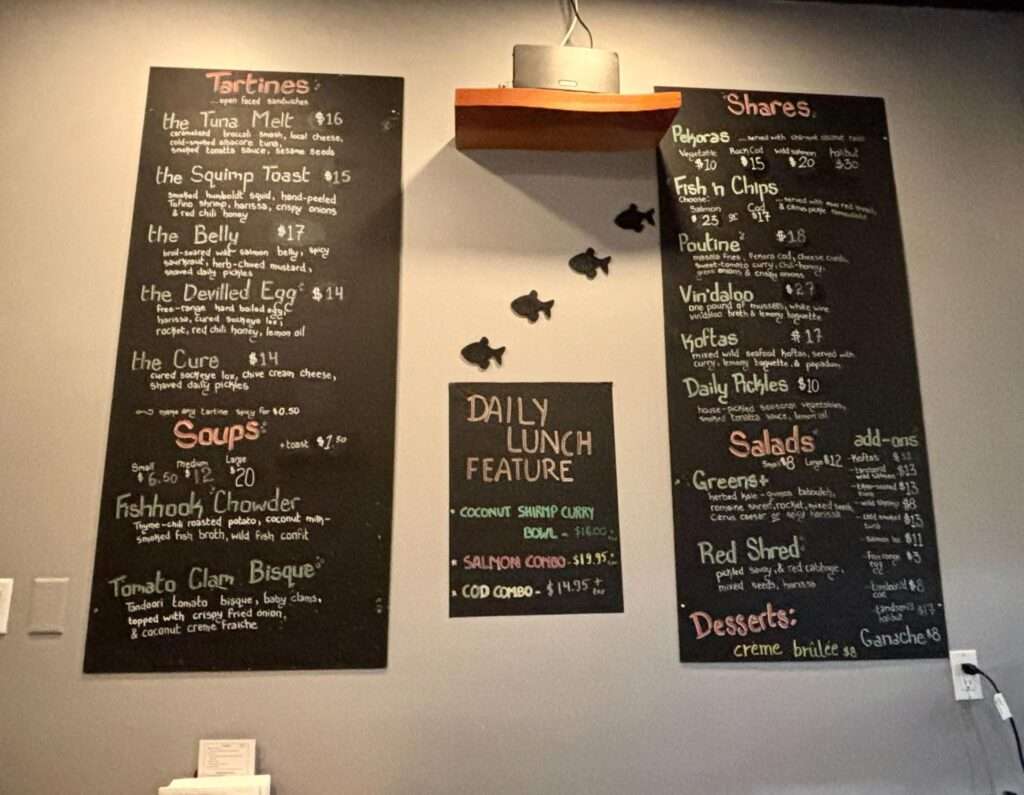 Tartines
...open faced sandwiches
the Tuna Melt $16
caramelized broccoli smash, local cheese,
cold-smoked albacore tuna,
smoked tomatta sauce, sesame seeds
the Squimp Toast $15
smoked humboldt squid, hand-peeled
Tofino shrimp, harissa, crispy onions
& red chili honey
the Belly $17
broil-seared wild salmon belly, spicy
saurkraut, herb-chived mustard,
shaved daily pickles
the Devilled Egg $14
free-range hard boiled egg,
harissa, cured sockeye lox,
rocket, red chili honey, lemon oil
the Cure $14
cured sockeye lox, chive cream cheese,
shaved daily pickles
make any tartine spicy for $0.50
Soups +toast $1.50
Small Medium Large
$6.50 $12 $20
Fishhook Chowder
Thyme-chili roasted potato, coconut milk-
smoked fish broth, wild fish confit
Tomato Clam Bisque
Tandoori tomato bisque, baby clams,
topped with crispy fried onion,
& coconut creme fraiche
DAILY
LUNCH
FEATURE
COCONUT SHIRMP CURRY
BOWL - $16.00
SALMON COMBO - $19.95 +
COD COMBO - $14.95 + tax
Shares
Pekoras ...served with
Vegetable Rock Cod Wild salmon halibut
$10 $15 $20 $30
Fish 'n Chips
Choose: ...served with
Salmon Cod
$23 or $17
Poutine $18
masala fries, cod, cheese curds,
sweet-tomato curry, chili-honey,
green onions & crispy onions
Vin'daloo $27
one pound of mussels, white wine
vin'daloo broth & lemony baguette
Koftas $17
mixed wild seafood koftas, served with
curry, lemony baguette, & papadum
Daily Pickles $10
house-pickled seasonal vegetables,
smoked tomatta sauce, lemon oil
Salads add-ons
Small $8 Large $12
Greens+
herbed kale-quinoa tabouleh,
romaine shred, rocket, mixed seeds,
citrus caesar or spicy harissa
Red Shred
pickled savoy & red cabbage,
mixed seeds, harissa
-Koftas
-tandoori wild salmon $13
$13
$8
-cold smoked tuna $13
-Salmon lox $11
-free range egg $3
-tandoori cod $8
-tandoori halibut $17
Desserts:
Ganache $8
crème brûlée $8